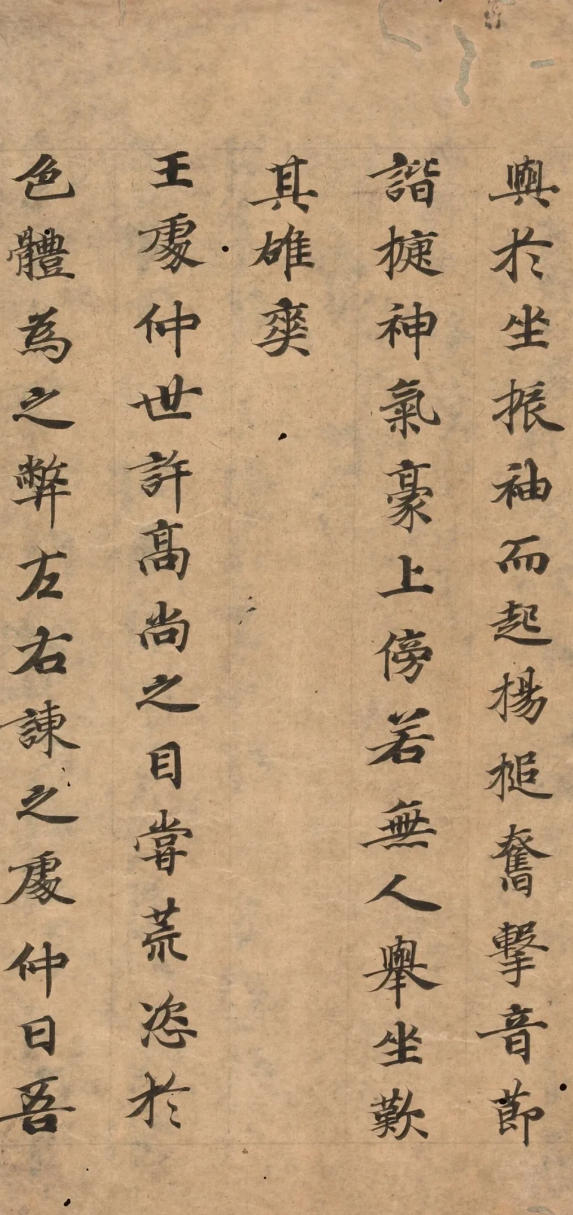 輿於坐振袖而起揚槌奮擊音節
諧捷神氣豪上傍若無人舉坐歎
其雄爽
王處仲世許髙尚之目嘗荒恣於
色體為之弊左右諫之處仲曰吾